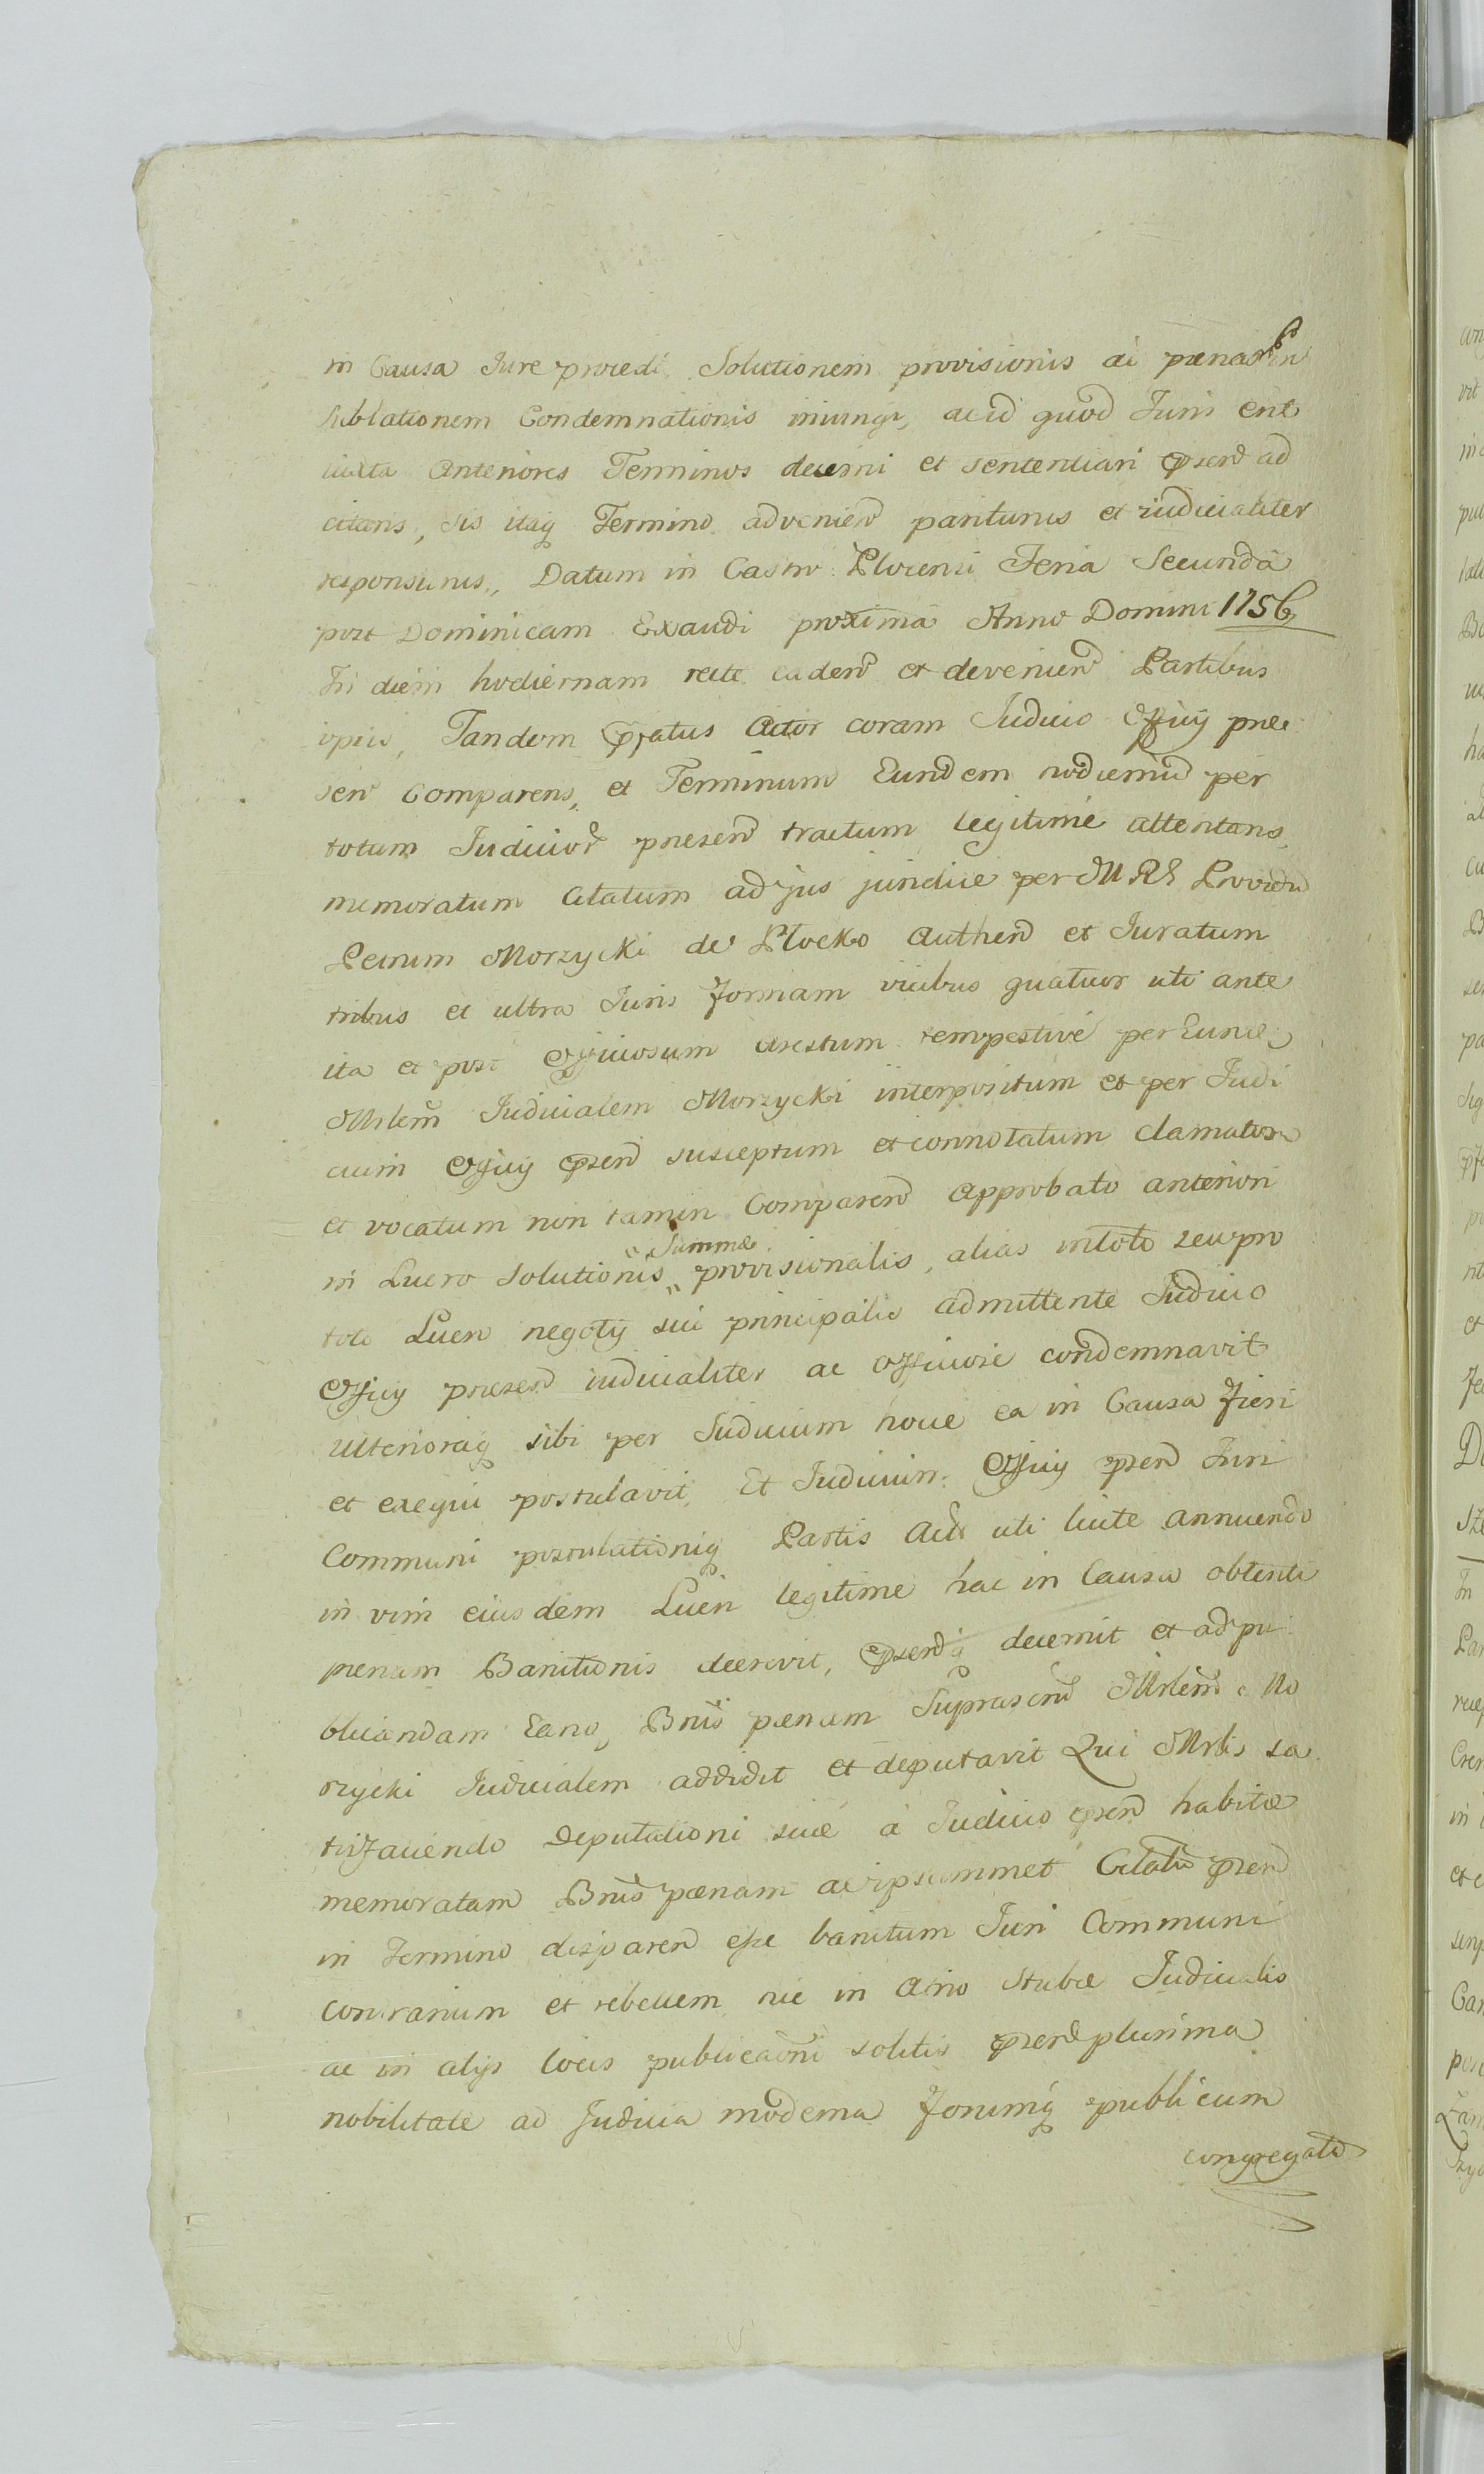 in Causa Jure procedi Solutionem provisionis ac pænar in
sublationem Condemnationis iniungi, ac id quod Juris erit
iuxta anteriores Terminos decerni et sententiari pserñ ad
citaris, sis itaq Termino adveniēñ pariturus et iudicialiter
responsurus, Datum in Castro Plocensi Feria Secunda
post Dominicam Exaudi proxima Anno Domini 1756
In diem hodiernam recte cadeñ et devenieñ Partibus
ipsis, Tandem pfatus Actor coram Judicio Officij præ
señ Comparens, et Terminum Eundem hodiernũ per
totum Judicior presenñ tractum legitime attentans,
memoratum Citatum ad jus juridice per M R Providũ
Petrum Morzycki de Płocko Authenñ et Juratum
tribus et ultra Juris formam vicibus quatuor uti ante
ita et post Officiosum Arestum tempestive per Eundẽ
Mrlem Judicialem Morzycki interpositum et per Judi
cium Officij pseñ susceptum et connotatum clamatum
et vocatum non tamen Compareñ Approbato anteriori
in Lucro Solutionis " Summæ " provisionalis, alias in toto seu pro
toto Lucro negotij sui principalis admittente Judicio
Officij preseñ iudicialiter ac Officiose condemnavit
Ulterioraq sibi per Judicium hocce ea in Causa fieri
et exequi postulavit, Et Judicium Officij pseñ Juri
Communi postulationiq Partis Act uti licite annuendo
in vim eiusdem Lucri legitime hac in Causa obtenti
penam Banitionis decrevit, pserñq decernit et ad pu
blicandam Eand, Bnis pænam Suprascrñ Mrlem Mo
rzycki Judicialem addidit et deputavit Qui Mrlis sa
tisfaciendo Deputationi suæ à Judicio pseñ habitæ
memoratam Bnis pænam ac ipsummet Citatũ pseñ
in Termino dispareñ esse banitum Juri Communi
contrarium et rebellem hic in Atrio Stubæ Judicialis
ac in alijs locis publicaoni solitis pserñ plurima
nobilitate ad Judicia moderna Forumq publicum
congregata